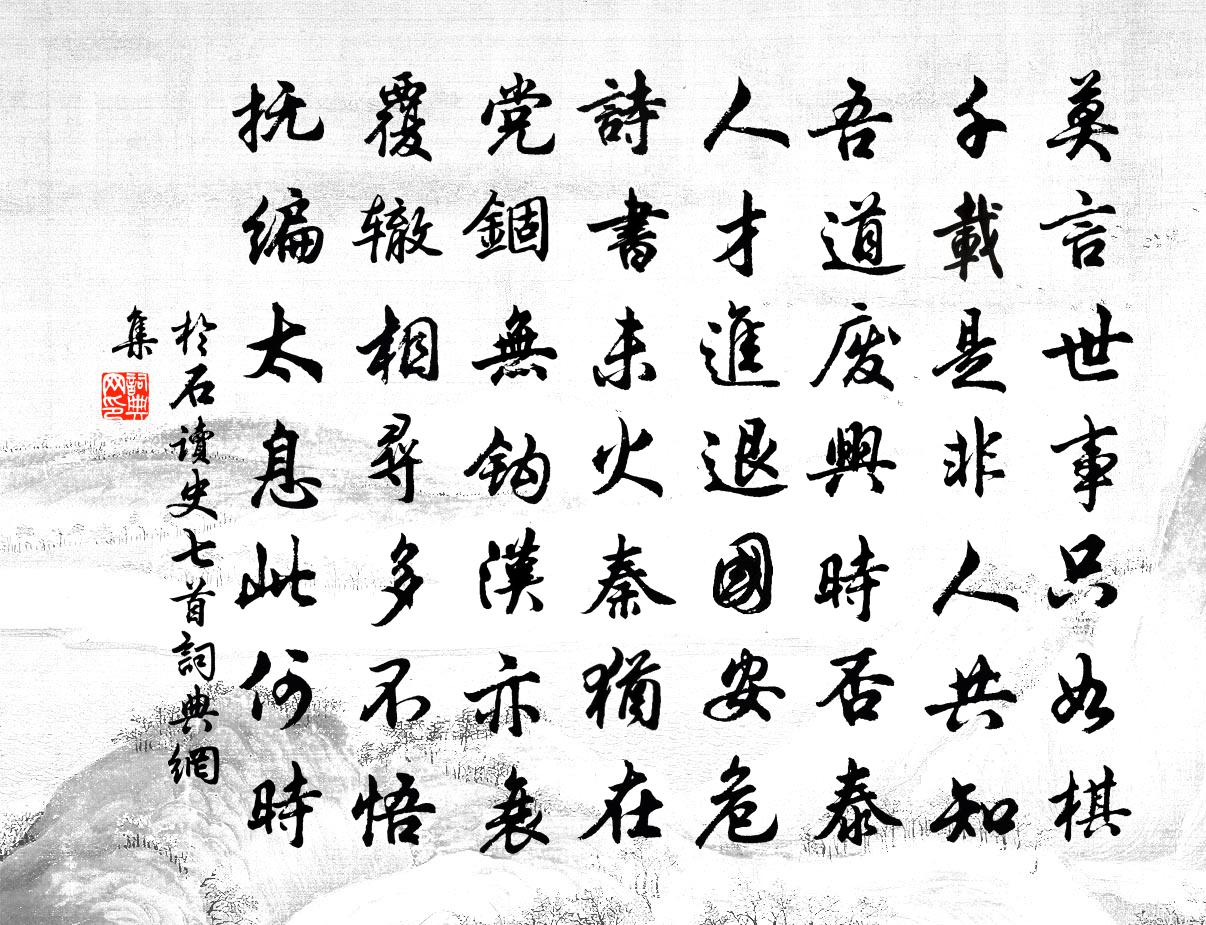 莫言世事只如棋
千載是非人共知
吾道废興時否泰
人才進退國安危
詩書未火秦猶在
党錮無钩漢亦衰
覆辙相尋多不悟
抚编太息此何時
於石讀史七首詞典網
集
詞典網印